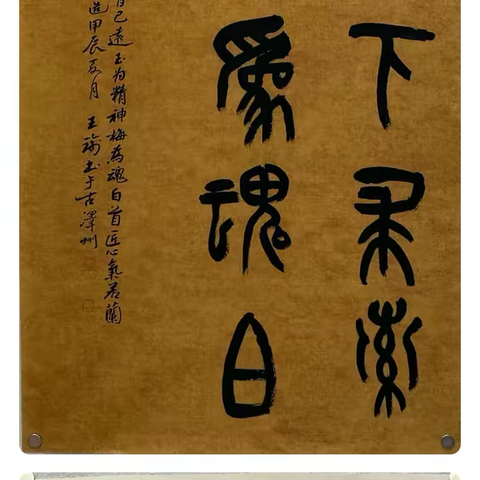 下求索
為魂白
已遠玉為精神梅為魂白首匠心氣若蘭
甲辰夏月 王瑜書于古澤州